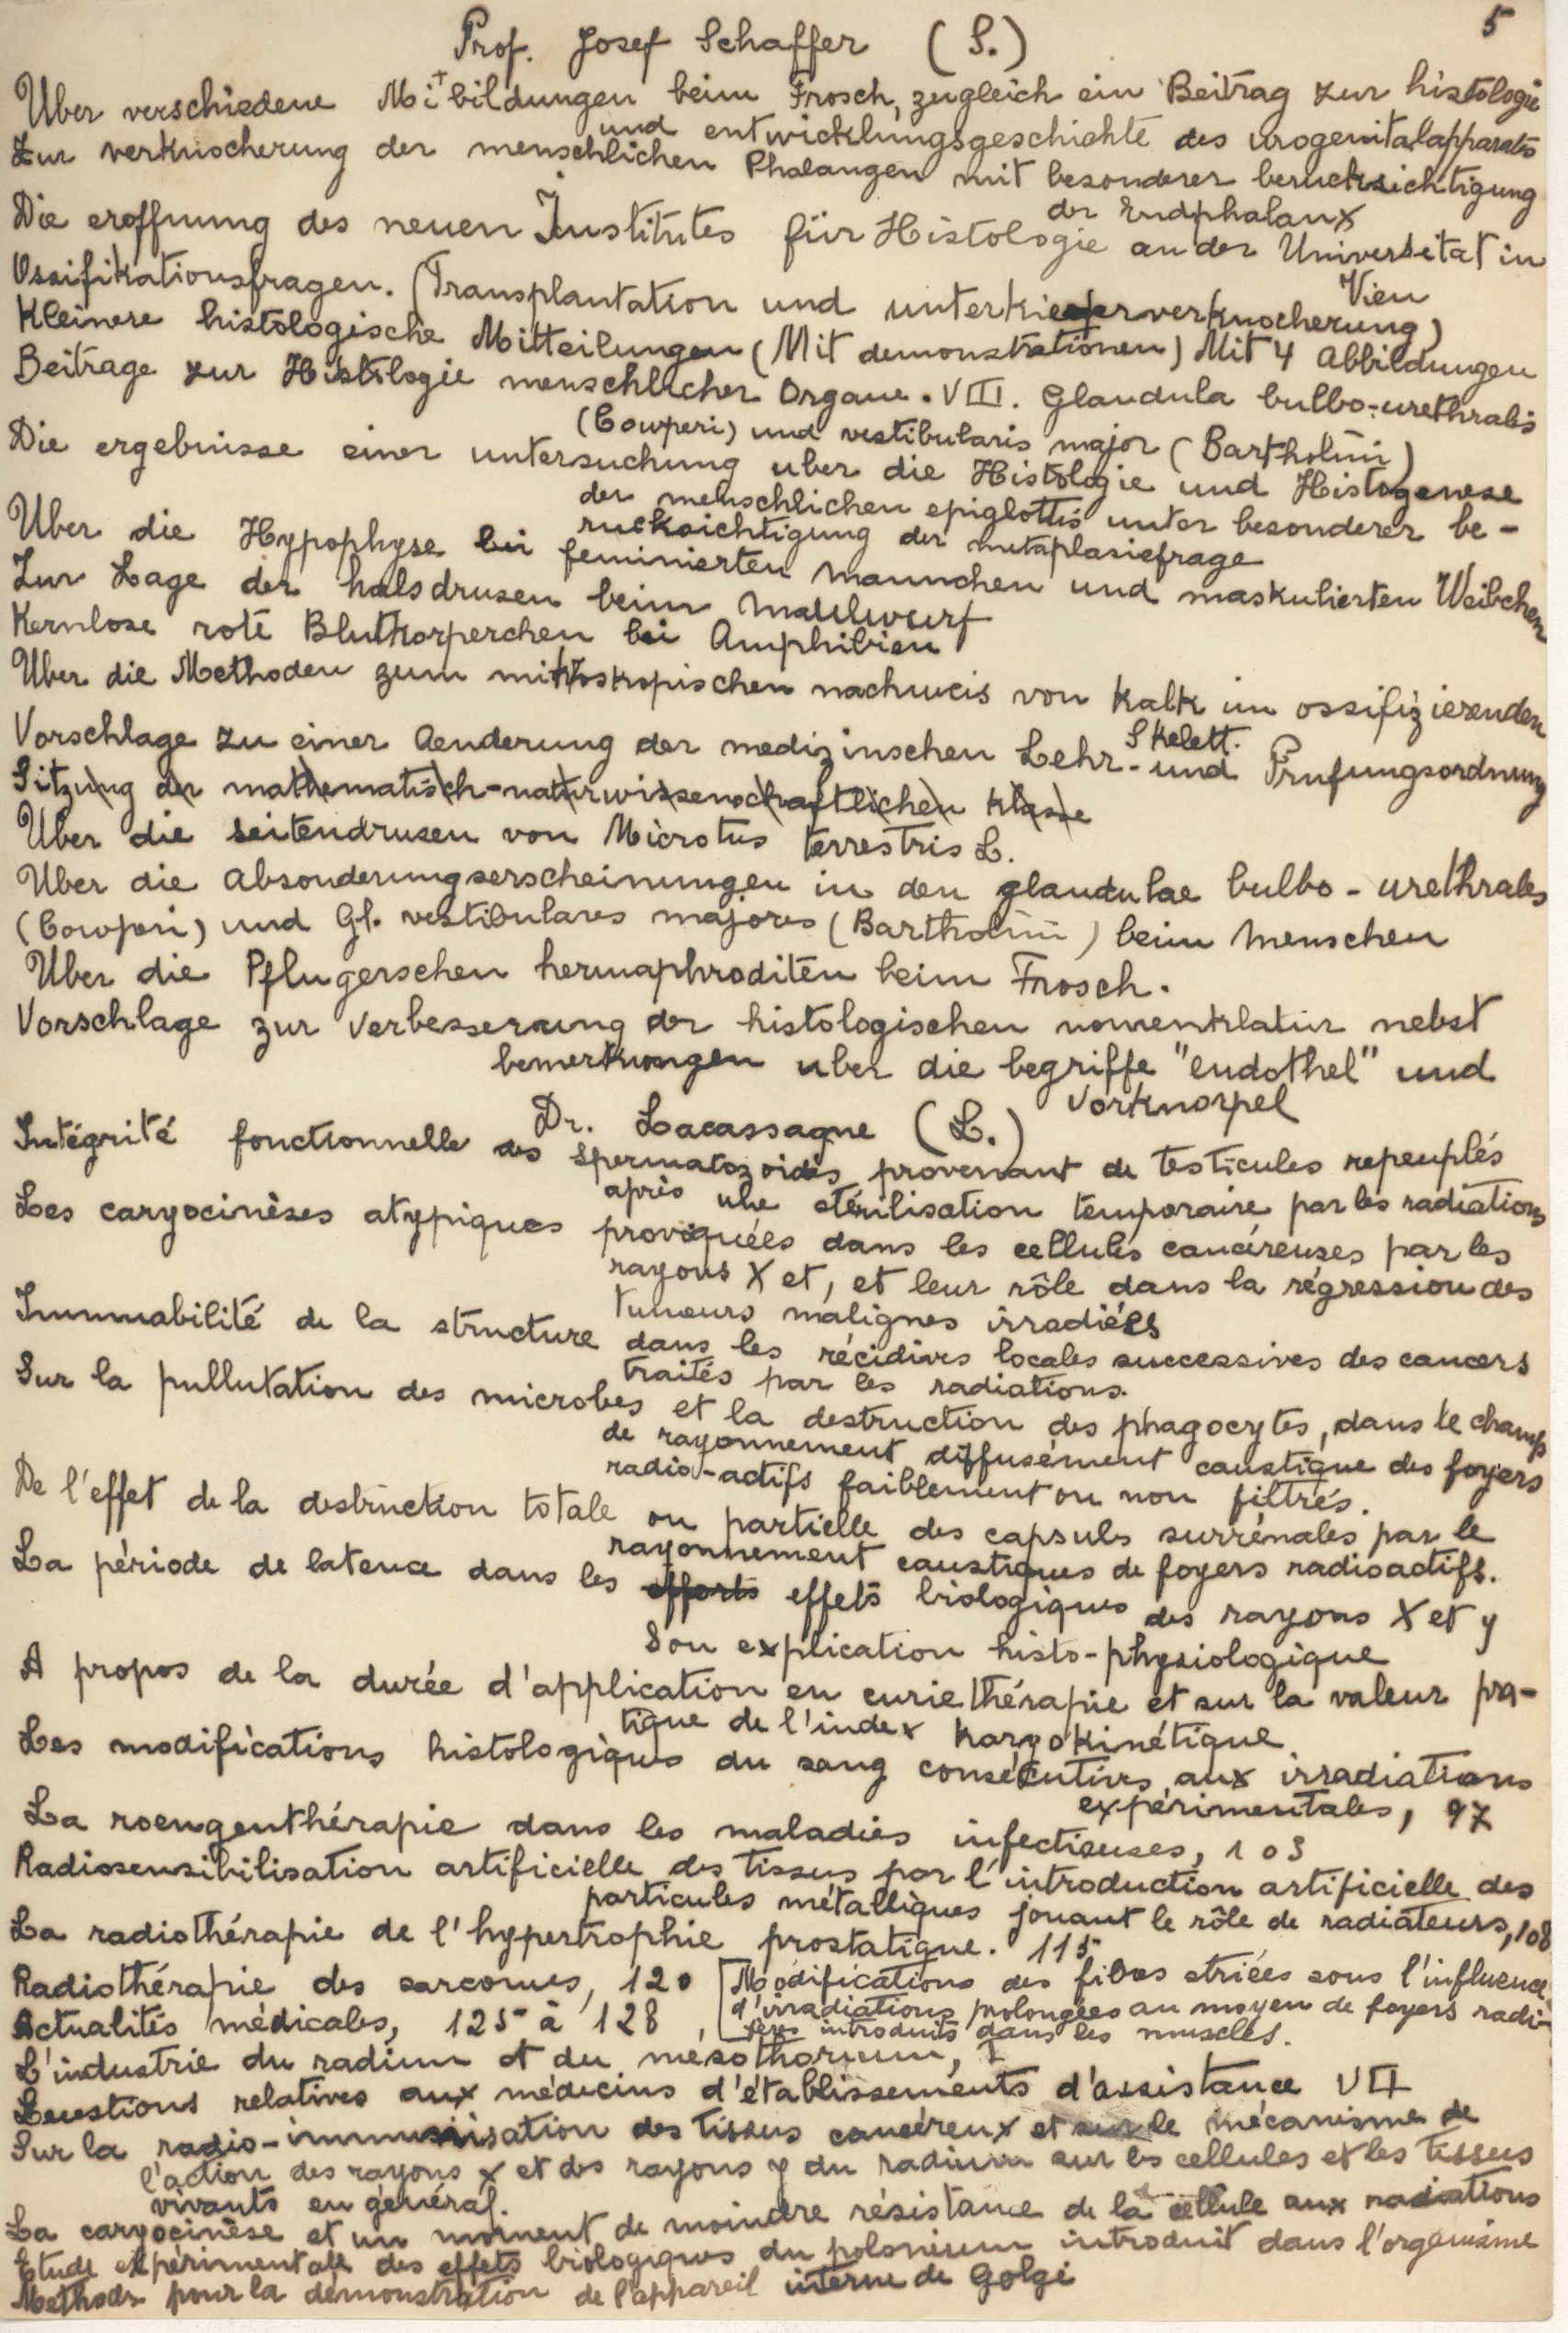 5
Prof. Josef Schaffer (S.)
Uber verschiedene Mi+bildungen beim Frosch, zugleich ein Beitrag zur histologie
und entwicklungsgeschichte des urogenitalapparats
Zur verknocherung der menschlichen Phalangen mit besonderer berucksichtigung
der Endphalanx
Die eroffnung des neuen Institutes für Histologie an der Universitat in
Vien
Ossifikationsfragen. (Transplantation und unterkieferverknocherung)
Kleinere histologische Mitteilungen (Mit demonstrationen) Mit 4 Abbildungen
Beitrage zur Histologie menschlicher Organe. VIII. Glandula bulbo-urethralis
(Cowperi) und vestibularis major (Bartholini)
Die ergebnisse einer untersuchung uber die Histologie und Histogenese
der menschlichen epiglottis unter besonderer be-
rucksichtigung der metaplasiefrage
Uber die Hypophyse bei feminierten mannchen und maskulierten Weibchen
Zur Lage der halsdrusen beim maulwurf
Kernlose rote Blutkorperchen bei Amphibien
Uber die Methoden zum mikroskopischen nachweis von Kalk im ossifizierenden
Skelett.
Vorschlage zu einer Aenderung der medizinschen Lehr- und Prufungsordnung
Sitzung der mathematisch-naturwissenschaftlichen klasse
Uber die seitendrusen von Microtus terrestris L.
Uber die absonderungserscheinungen in den glandulae bulbo-urethrales
(Cowperi) und Gl. vestibulares majores (Bartholini) beim menschen
Uber die Pflugerschen hermaphroditen beim Frosch.
Vorschlage zur verbesserung der histologischen nomenklatur nebst
bemerkungen uber die begriffe "endothel" und
vorknorpel
Dr. Lacassagne (L.)
Intégrité fonctionnelle des spermatozoides provenant de testicules repeuplés
après une stérilisation temporaire par les radiations
Les caryocinèses atypiques provoquées dans les cellules cancéreuses par les
rayons X et, et leur rôle dans la régression des
tumeurs malignes irradiées
Immuabilité de la structure dans les récidives locales successives des cancers
traités par les radiations.
Sur la pullutation des microbes et la destruction des phagocytes, dans le champs
de rayonnement diffusément caustique des foyers
radio-actifs faiblement ou non filtrés.
De l'effet de la destruction totale ou partielle des capsuls surrénales par le
rayonnement caustiques de foyers radioactifs.
La période de latence dans les efforts effets biologiques des rayons X et y
Son explication histo-physiologique
A propos de la durée d'application en curiethérapie et sur la valeur pra-
tique de l'index karyokinétique
Les modifications histologiques du sang consécutives aux irradiations
expérimentales, 97
La roengenthérapie dans les maladies infectieuses, 103
Radiosensibilisation artificielle des tissus par l'introduction artificielle des
particules métalliques jouant le rôle de radiateurs, 108
La radiothérapie de l'hypertrophie prostatique. 115
Radiothérapie des sarcomes, 120
Actualités médicales, 125 à 128,
[Modifications des fibres striées sous l'influence
d'irradiations prolongées au moyen de foyers radi-
fers introduits dans les muscles.
L'industrie du radium et du mesothorium, I
Questions relatives aux médecins d'établissements d'assistance VII
Sur la radio-immunisation des tissus cancéreux et sur le mécanisme de
l'action des rayons X et des rayons y du radium sur les cellules et les tissus
vivants en général.
La caryocinèse et un moment de moindre résistance de la cellule aux radiations
Etude expérimentale des effets biologiques du polonium introduit dans l'organisme
Methods pour la demonstration de l'appareil interne de Golgi